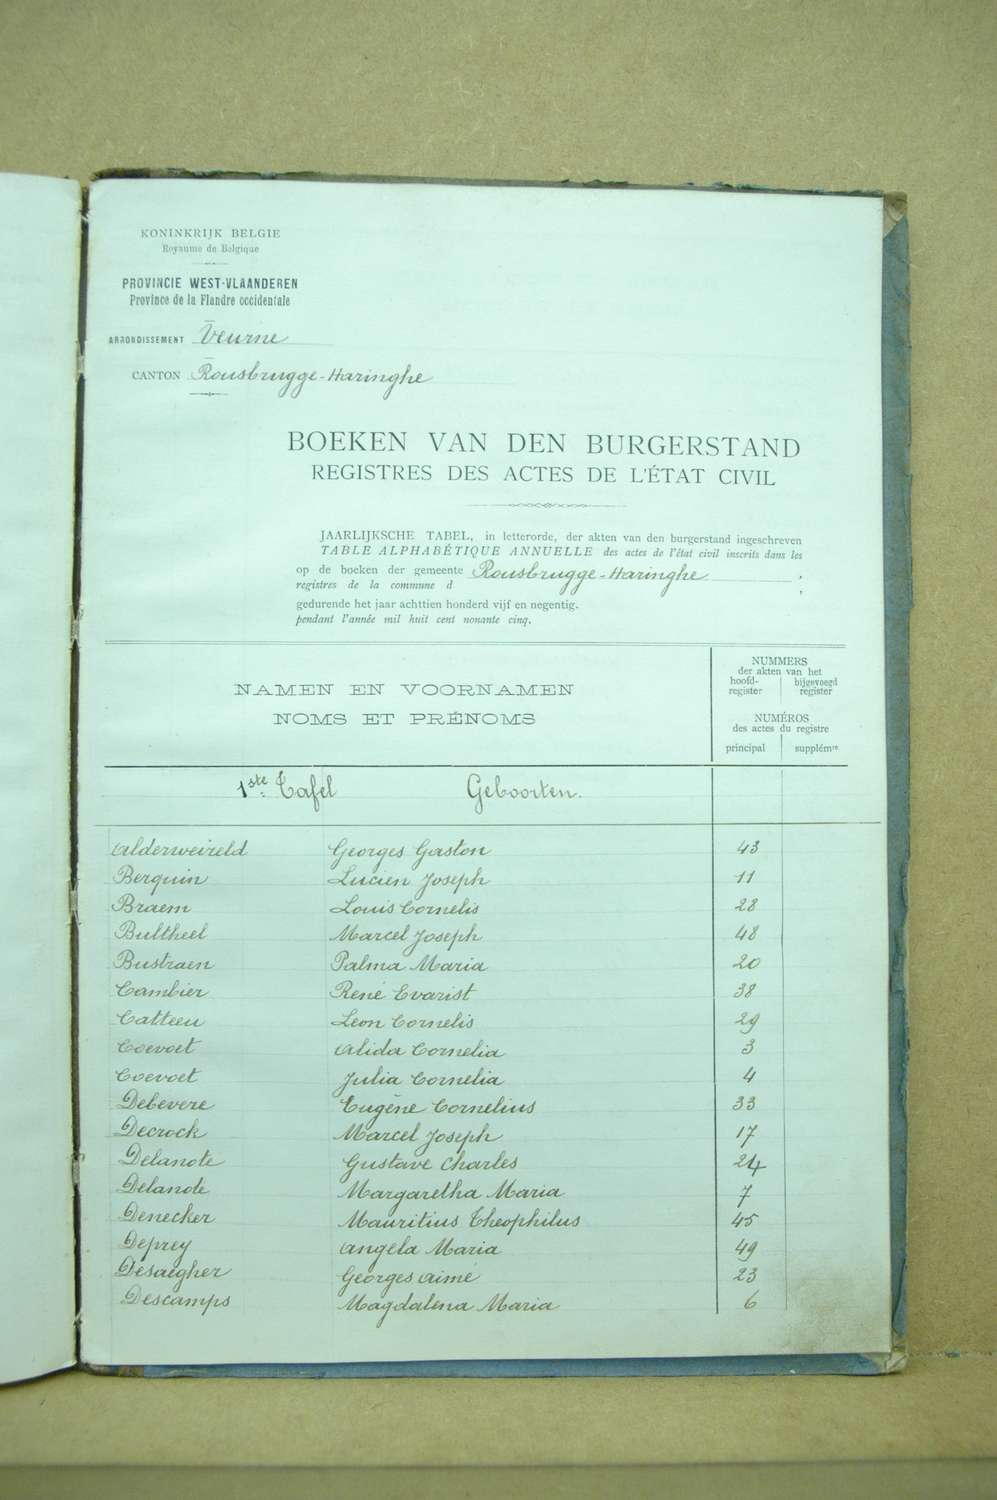 KONINKRIJK BELGIE
Royaume de Belgique
PROVINCIE WEST-VLAANDEREN
Province de la Flandre occidentale
ARRONDISSEMENT Veurne
CANTON Rousbrugge-Haringhe
BOEKEN VAN DEN BURGERSTAND
REGISTRES DES ACTES DE L'ÉTAT CIVIL
JAARLIJKSCHE TABEL, in letterorde, der akten van den burgerstand ingeschreven
TABLE ALPHABÉTIQUE ANNUELLE des actes de l'état civil inscrits dans les
op de boeken der gemeente Rousbrugge-Haringhe ;
registres de la commune d ;
gedurende het jaar achttien honderd vijf en negentig.
pendant l'année mil huit cent nonante cinq.
NAMEN EN VOORNAMEN
NOMS ET PRÉNOMS
NUMMERS
der akten van het
hoofd-register
bijgevoegd register
NUMÉROS
des actes du registre
principal supplémre
1ste Tafel Geboorten.
Alderweireld Georges Gaston 43
Berquin Lucien Joseph 11
Braem Louis Cornelis 28
Bultheel Marcel Joseph 48
Bustraen Palma Maria 20
Cambier René Evarist 38
Catteeu Leon Cornelis 29
Coevoet Alida Cornelia 3
Coevoet Julia Cornelia 4
Debevere Eugène Cornelius 33
Decrock Marcel Joseph 17
Delanote Gustave Charles 24
Delanote Margaretha Maria 7
Denecker Mauritius Theophilus 45
Deprey Angela Maria 49
Desaegher Georges Aimé 23
Descamps Magdalena Maria 6